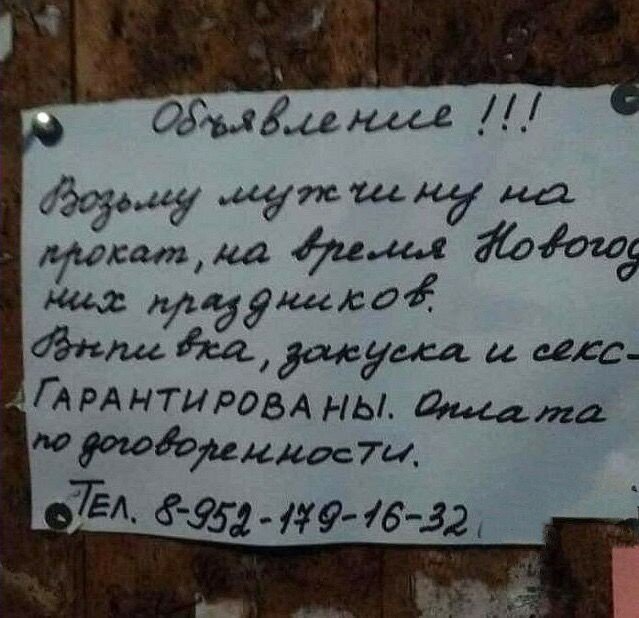 Объявление !!!
Возьму мужчину на
прокат, на время Новогод
них праздников.
Выпивка, закуска и секс-
ГАРАНТИРОВАНЫ. Оплата
по договоренности.
ТЕЛ. 8-952-179-16-32